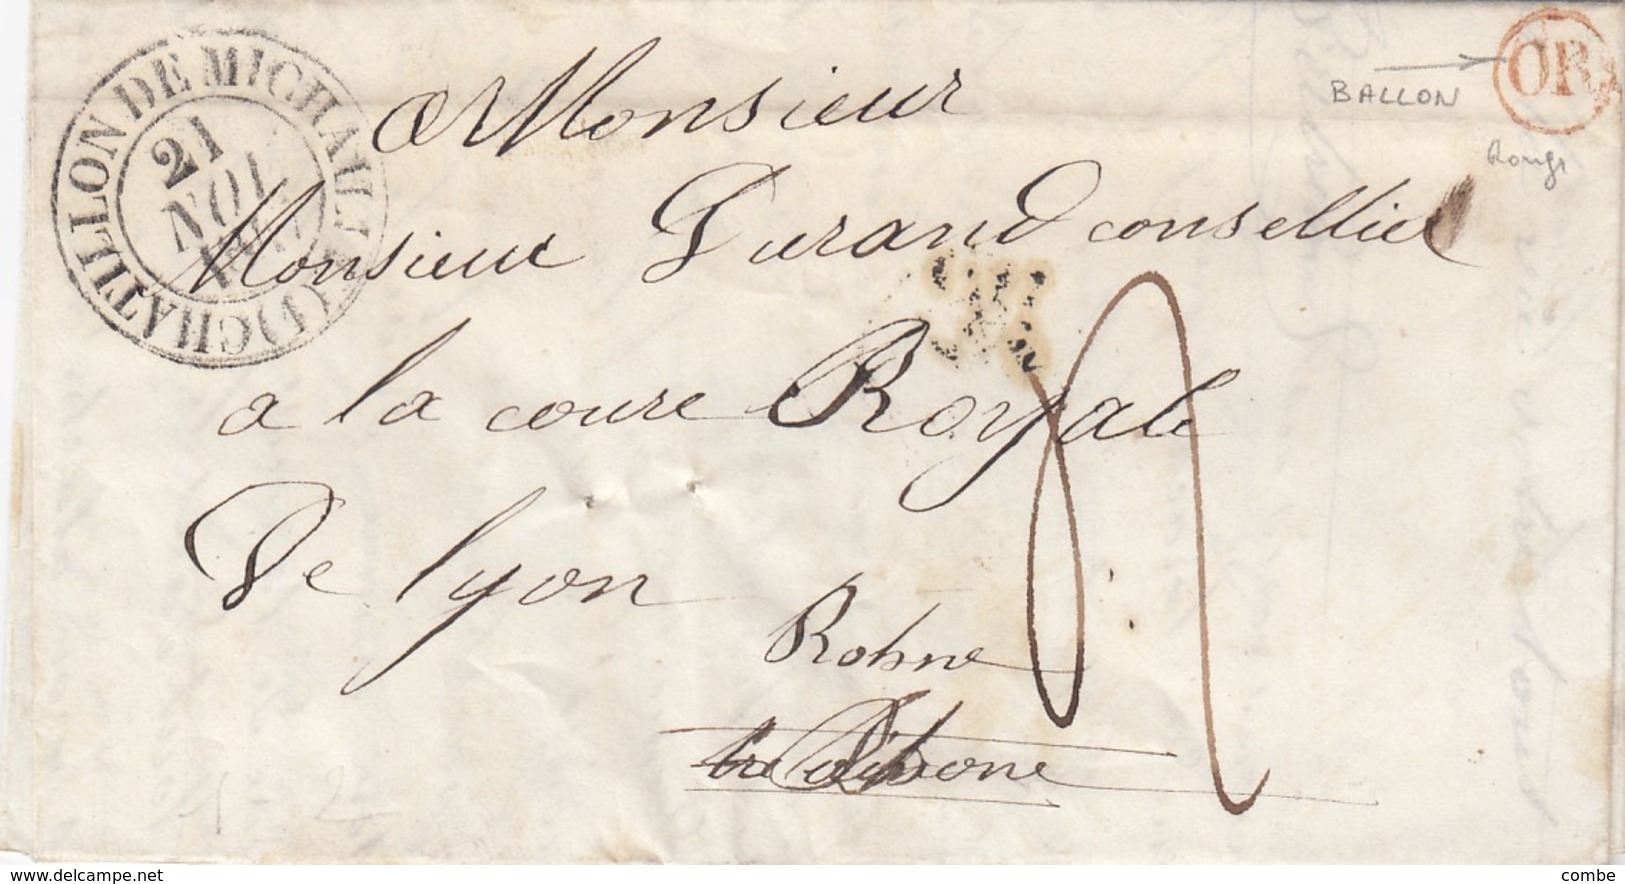 CHATILLON DE MICHAILLE (1)
21
NOV
OR
BALLON
Rouge
A Monsieur
Monsieur Durand consellier
a la coure Royale
De lyon
Rohne
delcampe.net
combe